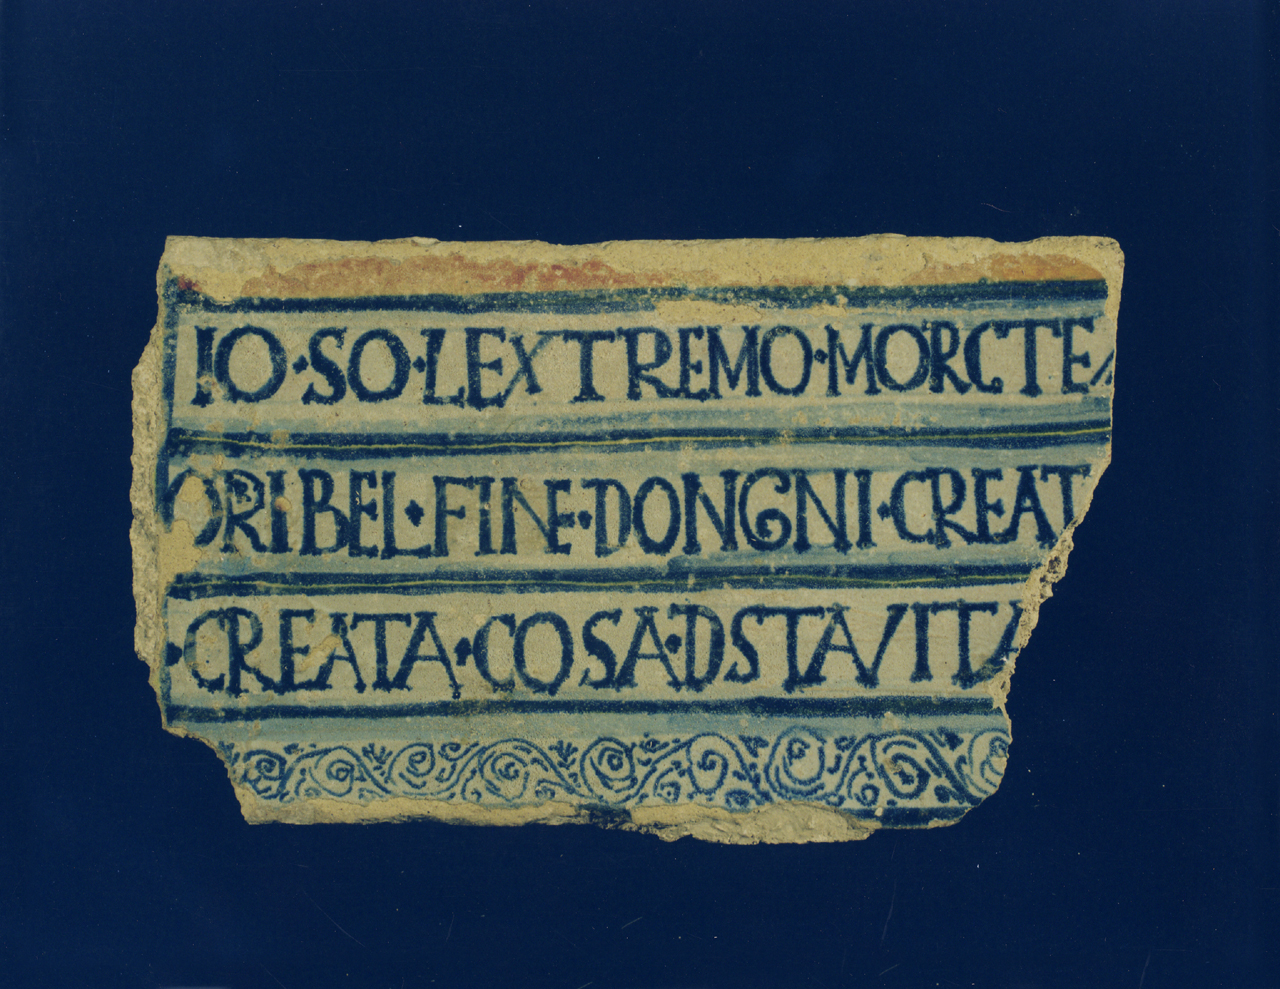 IO·SO·LEXTREMO·MORCTE
ORIBEL·FINE·DONGNI·CREAT
·CREATA·COSA·DSTAVITA